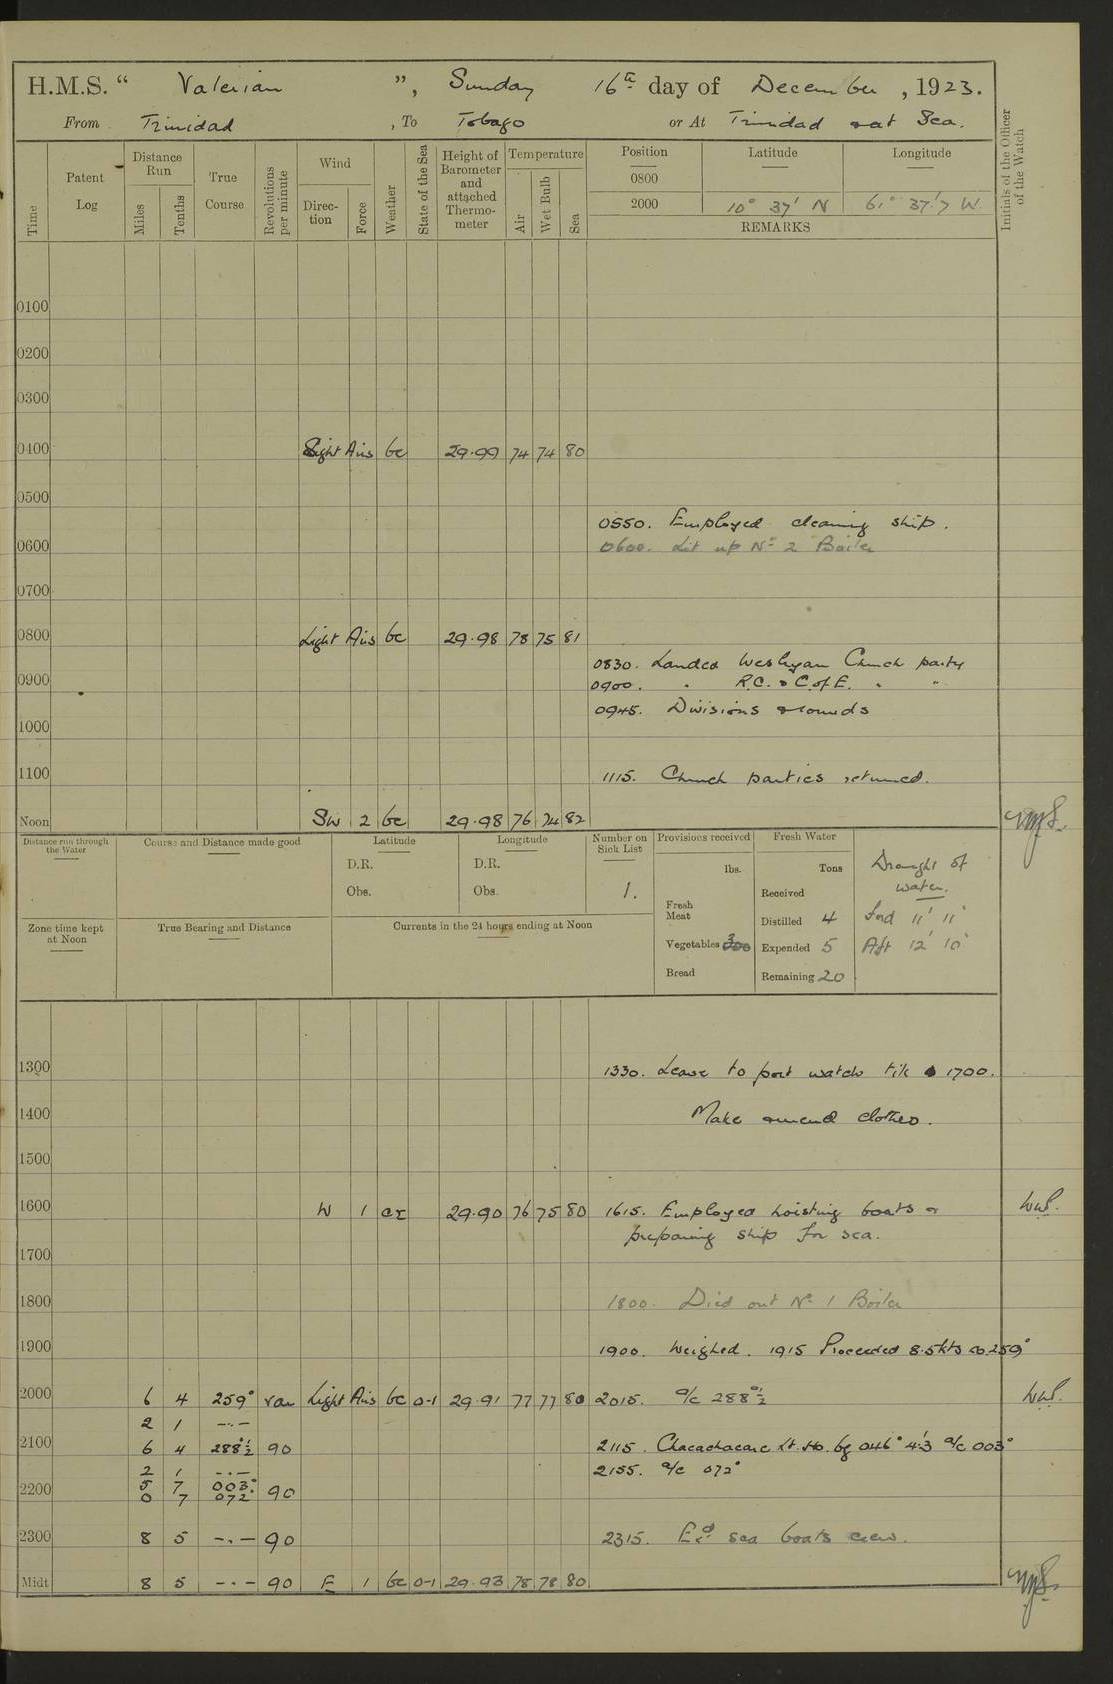 H.M.S. " Valerian ", Sunday 16th day of December, 1923.
From Trinidad, To Tobago or At Trinidad & at Sea.
Time Patent Log Distance Run Miles Tenths True Course Revolutions per minute Wind Direction Force Weather State of the Sea Height of Barometer and attached Thermometer Temperature Air Wet Bulb Sea Position Latitude Longitude Initials of the Officer of the Watch
0800
2000 10° 37' N 61° 37'.7 W.
REMARKS
0100
0200
0300
0400 Light Airs bc 29.99 74 74 80
0500
0550. Employed cleaning ship.
0600 0600. Lit up No 2 Boiler
0700
0800 Light Airs bc 29.98 78 75 81
0830. Landed Wesleyan Church party
0900 0900. " R.C. & C. of E. " "
0945. Divisions & rounds
1000
1100 1115. Church parties returned.
Noon SW 2 bc 29.98 76 74 82
Distance run through the Water Course and Distance made good Latitude Longitude Number on Sick List Provisions received Fresh Water
D.R. D.R. lbs. Tons Draught of water.
Obs. Obs. 1. Fresh Meat Received
Distilled 4 Ford 11' 11"
Zone time kept at Noon True Bearing and Distance Currents in the 24 hours ending at Noon Vegetables 300 Expended 5 Aft 12' 10"
Bread Remaining 20
1300 1330. Leave to port watch till 1700.
1400 Make & mend clothes.
1500
1600 W 1 29.90 76 75 80 1615. Employed hoisting boats &
preparing ship for sea.
1700
1800 1800. Died out No 1 Boiler
1900 1900. Weighed. 1915 Proceeded 8.5 kts co. 259°
2000 6 4 259° var Light Airs bc 0-1 29.91 77 77 80 2015. a/c 288°½
2 1 -.-
2100 6 4 288°½ 90 2115. Chacachacare Lt. Ho. bg 046° 4'.3 a/c 003°
2 1 -.- 2155. a/c 072°
5 7 003°
2200 0 7 072° 90
2300 8 5 -.- 90 2315. Exd sea boats crew.
Midt 8 5 -.- 90 E 1 bc 0-1 29.93 78 78 80